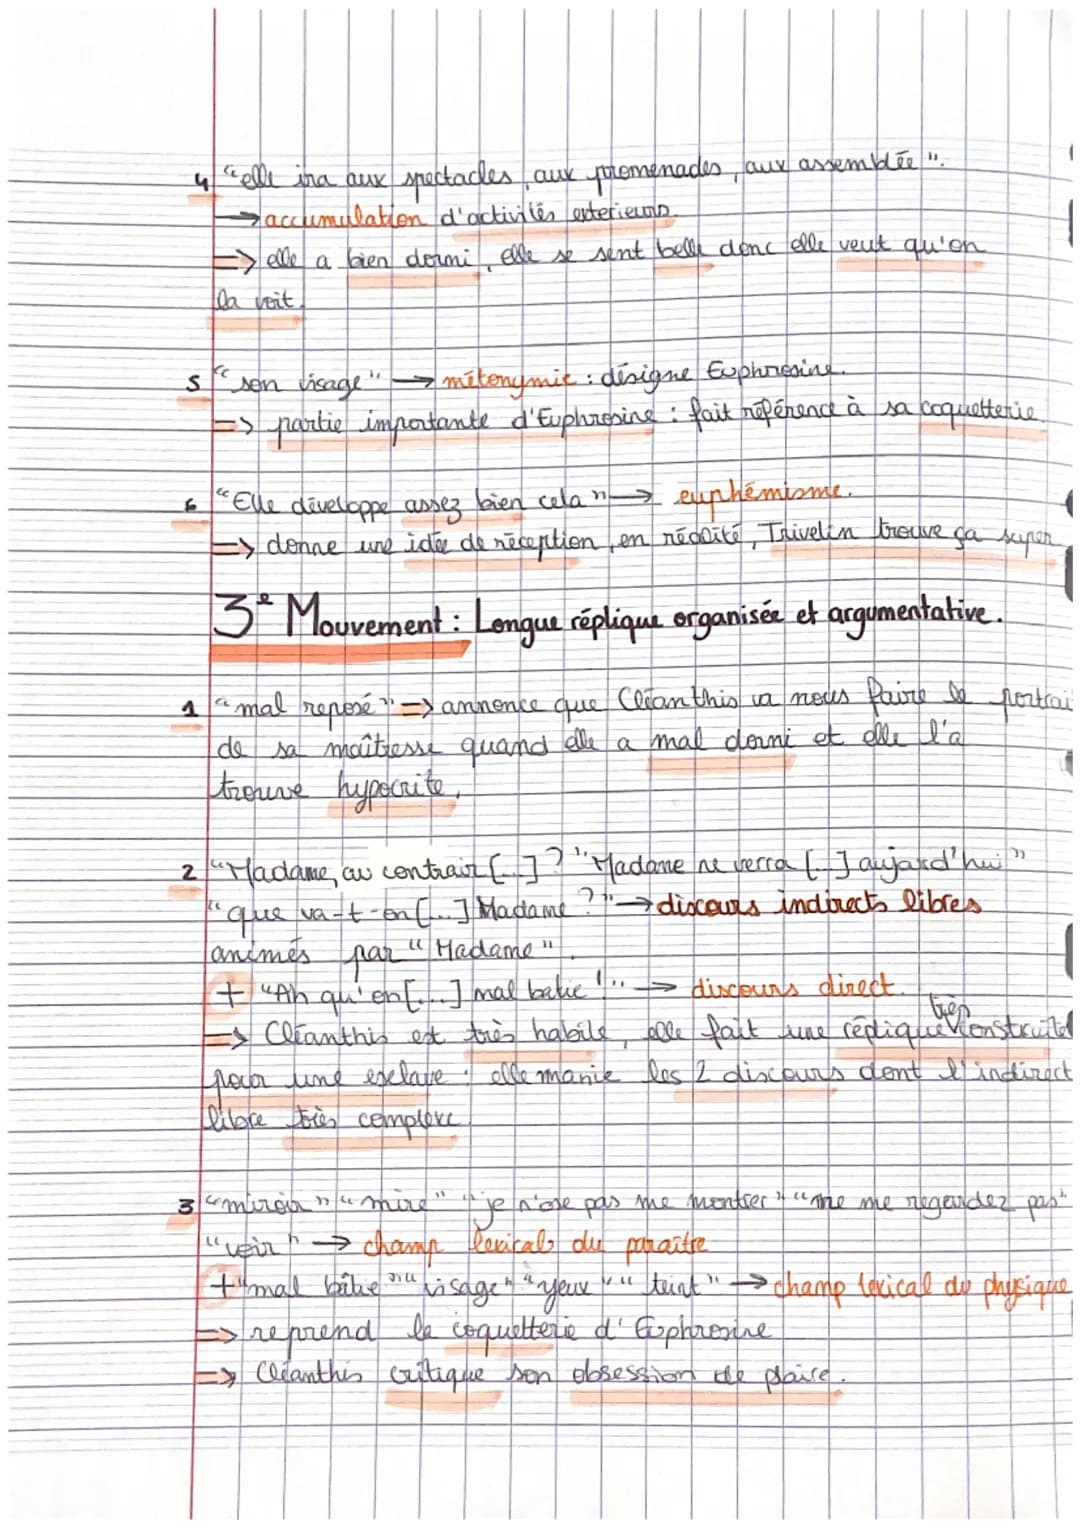 4 "elle ira aux spectacles, aux promenades, aux assemblée".
→ accumulation d'activités exterieurs.
=> elle a bien dormi, elle se sent belle donc elle veut qu'on
la voit.
5 "son visage" → métonymie : désigne Euphrosine.
=> partie importante d'Euphrosine : fait référence à sa coquetterie.
6 "Elle développe assez bien cela" → euphémisme.
=> donne une idée de réception, en réalité, Trivelin trouve ça super
3e Mouvement : Longue réplique organisée et argumentative.
1 "mal reposé" => annonce que Cléanthis va nous faire le portrai
de sa maîtresse quand elle a mal dormi et elle l'a
trouve hypocrite.
2 "Madame, au contrair [...] ? "Madame ne verra [...] aujard'hui"
"que va-t-on [...] Madame ?" → discours indirects libres
animés par "Madame".
+ "Ah qu'on [...] mal batie !" → discours direct.
=> Cléanthis est très habile, elle fait une réplique très construite
pour une esclave : elle manie les 2 discours dont l'indirect
libre très complexe.
3 "miroir" "mire" "je n'ose pas me montrer" "me me regardez pas"
"voir" → champ lexical du paraître
+ "mal bâtie" "visage" "yeux" "teint" → champ lexical du physique
=> reprend la coquetterie d'Euphrosine
=> Cléanthis critique son obsession de plaire.